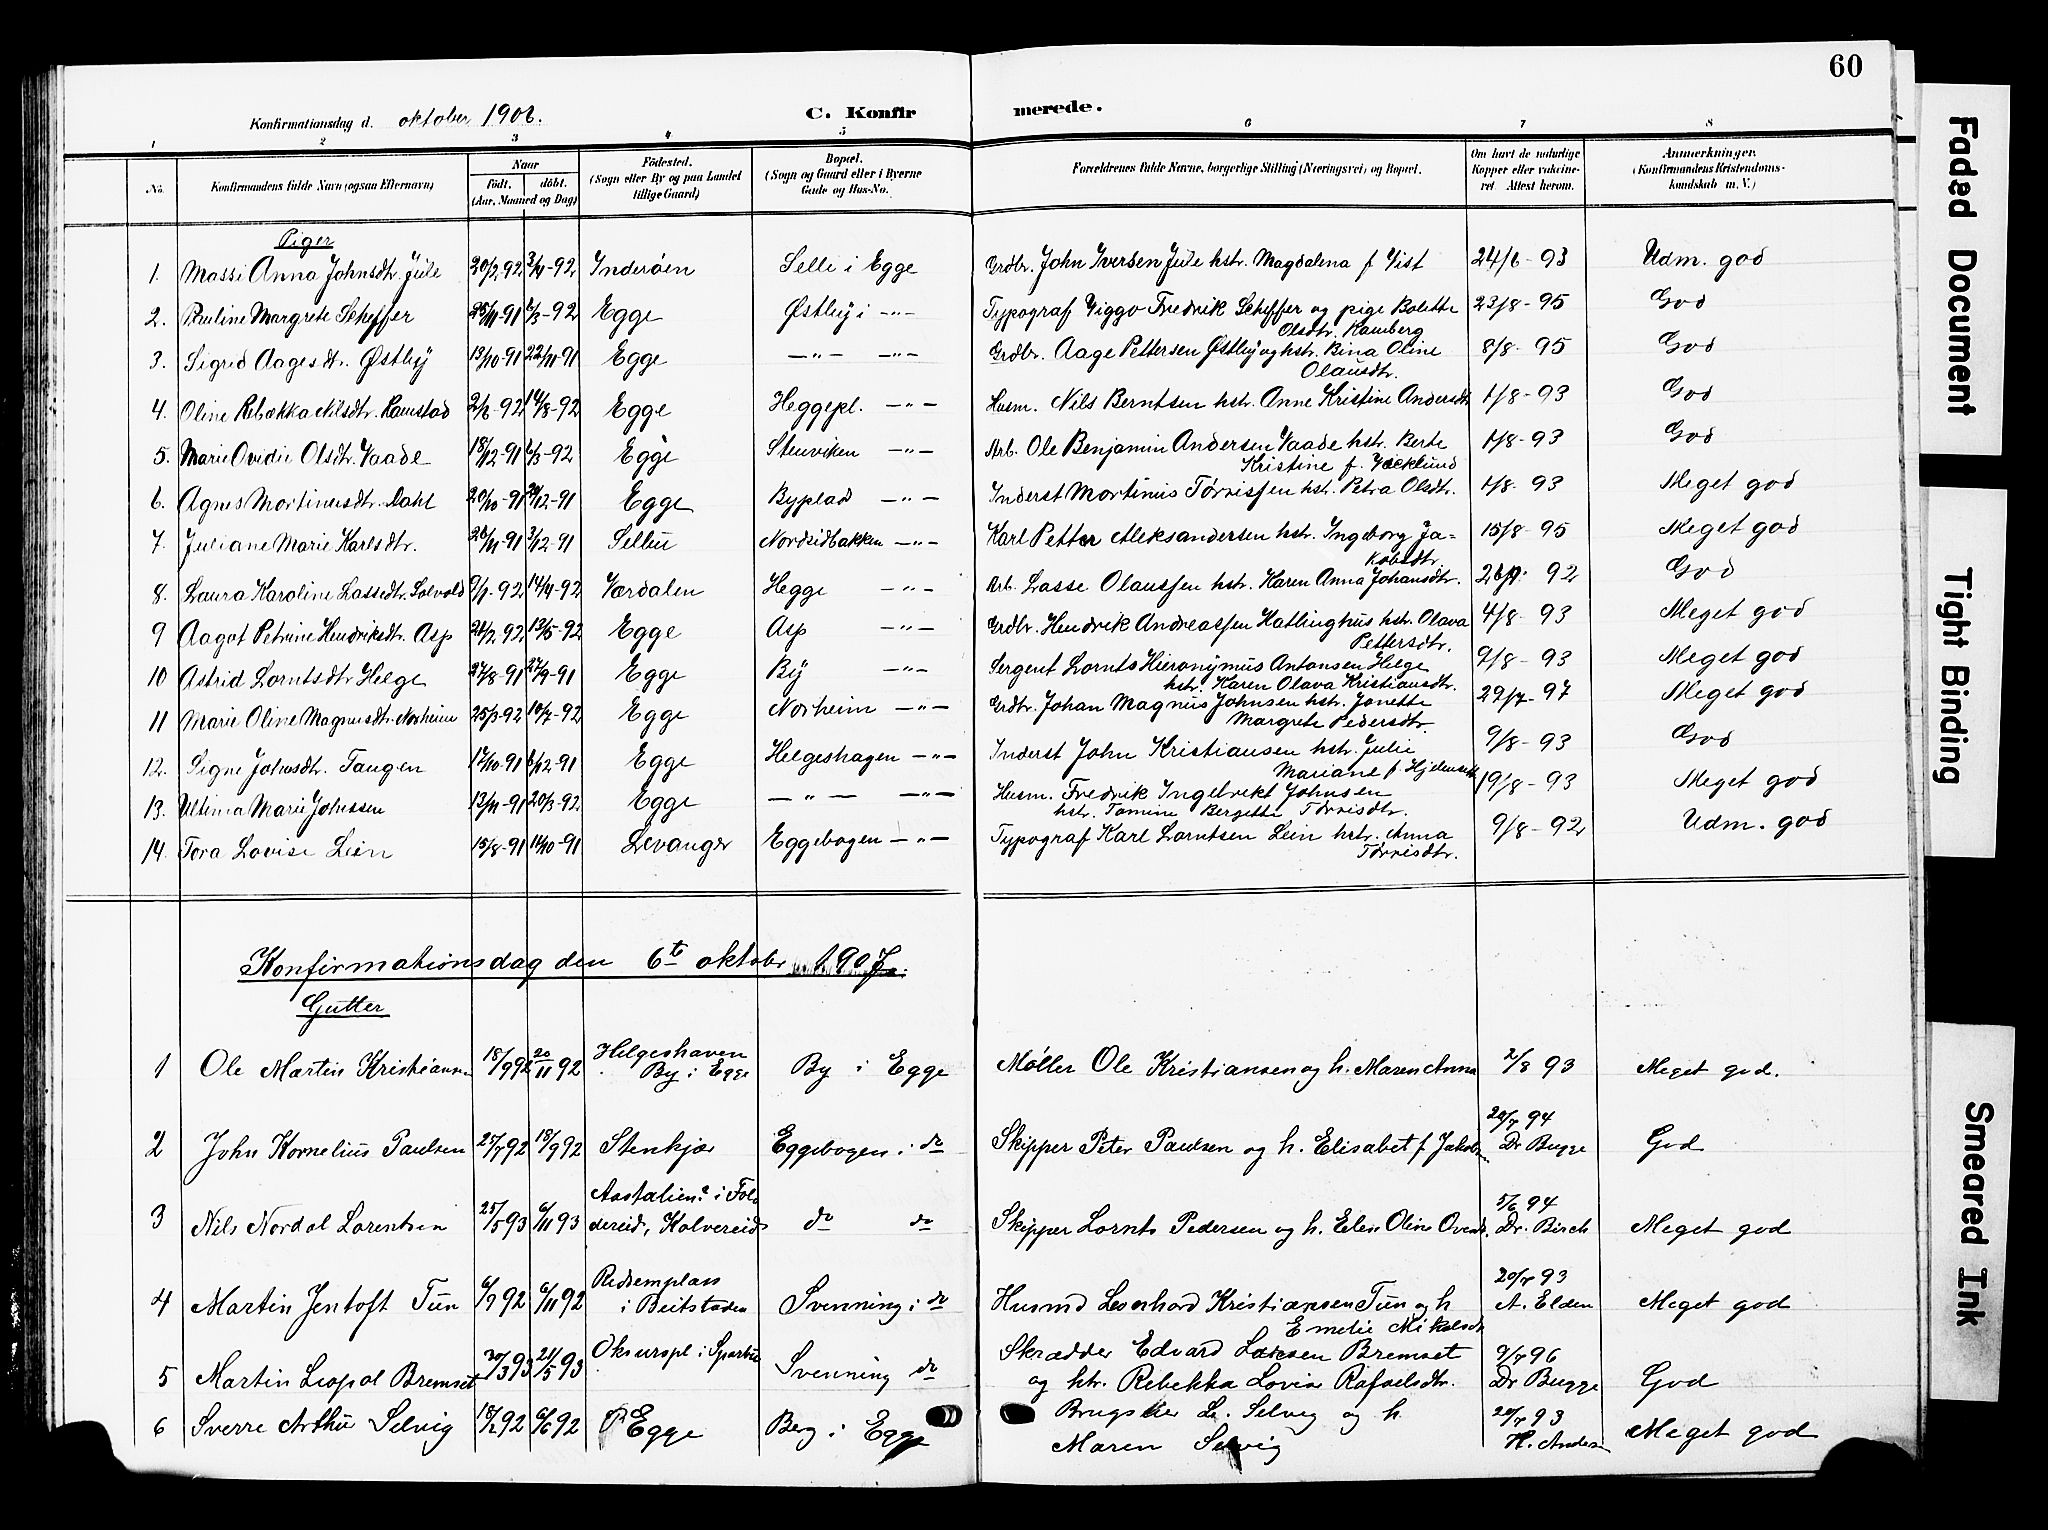 60
Konfirmationsdag d. oktober 1906. C. Konfirmerede.
1 2 3 4 5 6 7 8
No. Konfirmandens fulde Navn (ogsaa Efternavn) Naar født. døbt. (Aar, Maaned og Dag) Fødested. (Sogn eller By og paa Landet tillige Gaard) Bopæl. (Sogn og Gaard eller i Byerne Gade og Hus-No. Forældrenes fulde Navne, borgerlige Stilling (Næringsvei) og Bopæl. Om havt de naturlige Kopper eller vaccineret. Attest herom. Anmerkninger. (Konfirmandens Kristendomskundskab m. V.)
Piger
1. Massi Anna Johnsdtr. Jule 20/2-92 3/4-92 Inderøen Selli i Egge Grdbr. John Iversen Jule hstr. Magdalena f. Vist 24/6-93 Udm. god
2. Pauline Margrete Scheffer 25/11-91 6/3-92 Egge Østby i -"- Typograf Viggo Fredrik Scheffer og pige Bolette 23/8-95 God
Olsdtr. Ramberg
3. Sigrid Aagesdtr. Østby 13/10-91 22/11-91 Egge -"- -"- Grdbr. Aage Pettersen Østby og hstr. Bina Oline 8/8-95 God
Olausdtr.
4. Oline Rebækka Nilsdtr. Ramstad 2/6-92 14/8-92 Egge Heggepl. -"- Husm. Nils Berntsen hstr. Anne Kristine Andersdtr 1/8-93 God
5. Marie Ovidie Olsdtr. Vaade 18/12-91 6/3-92 Egge Stenviken -"- Arb. Ole Benjamin Andersen Vaade hstr. Berte 1/8-93 God
Kristine f.
6. Agnes Martinusdtr. Dahl 20/10-91 /12-91 Egge Byplad -"- Inderst Mortinus Tørrissen hstr. Petra Olsdtr. 1/8-93 Meget god
7. Juliane Marie Karlsdtr. 26/11-91 3/12-91 Selbu Nordsidbakken -"- Karl Petter Aleksandersen hstr. Ingeborg Ja- 15/8-95 Meget god
kobsdtr.
8. Laura Karoline Lassedtr. Solvold 9/1-92 14/4-92 Værdalen Hegge -"- Arb. Lasse Olaussen hstr. Karen Anna Johansdtr. 92 God
9 Aagot Petrine Hendriksdtr. Asp 26/2-92 12/5-92 Egge Asp -"- Grdbr. Hendrik Andreassen Hatlinghus hstr. Olava 4/8-93 Meget god
Pettersdtr.
10 Astrid Lorntsdtr Helge 27/8-91 27/9-91 Egge By -"- Sergent Lornts Hieronymus Antonsen Helge 9/8-93 Meget god
hstr. Karen Olava Kristiansdtr.
11 Marie Oline Magnusdtr. Norheim 25/3-92 10/7-92 Egge Norheim -"- Grdbr. Johan Magnus Johnsen hstr. Jonette 29/7-97 Meget god
Margrete Pedersdtr.
12. Signe Johnsdtr. Tangen 17/10-91 6/12-91 Egge Helgeshagen -"- Inderst John Kristiansen hstr. Julie 9/8-93 God
Mariane f.
13. Ultima Marie Johnssen 13/11-91 20/3-92 Egge -"- -"- Husm. Fredrik Ingebrekt Johnsen 19/8-93 Meget god
hstr. Tomine Bergitte Tørrisdtr.
14. Tora Lovise Lein 15/8-91 14/10-91 Levanger Eggebogen -"- Typograf Karl Lorntsen Lein hstr. Anna 9/8-92 Udm. god
Tørrisdtr.
Konfirmationsdag den 6te oktober 1907.
Gutter
1 Ole Martin Kristiansen 18/9 92 20/11 92 Helgeshaven By i Egge By i Egge Møller Ole Kristiansen og h. Maren Anna 2/8 93 Meget god.
2 John Kornelius Paulsen 25/7 92 18/9 92 Stenkjær Eggebogen i do Skipper Peter Paulsen og h. Elisabet f. Jakobs 20/7 94 Dr Bugge God
3 Nils Nordal Lorentsen 25/5 93 6/11 93 i Foldereid, Kolvereid do do Skipper Lornts Pedersen og h. Elen Oline 5/6 94 Dr. Birch Meget god
4 Martin Jentoft Tun 6/9 92 6/11 92 Ridsemplass i Beitstaden Svenning i do Husmd Leonhard Kristiansen Tun og h 20/7 93 A. Elden Meget god
Emelie Mikalsdt
5 Martin Leopol Bremset 30/3 93 21/5 93 i Sparbu Svenning do Skrædder Edvard Larsen Bremset 9/7 96 Dr Bugge God
og htr. Rebekka Lovise Rafaelsdtr.
6 Sverre Arthur Selvig 18/2 92 6/6 92 Egge Berg i Egge L. Selvig og h 20/7 93 H. Meget god
Maren Selvig
Faded Document
Tight Binding
Smeared Ink